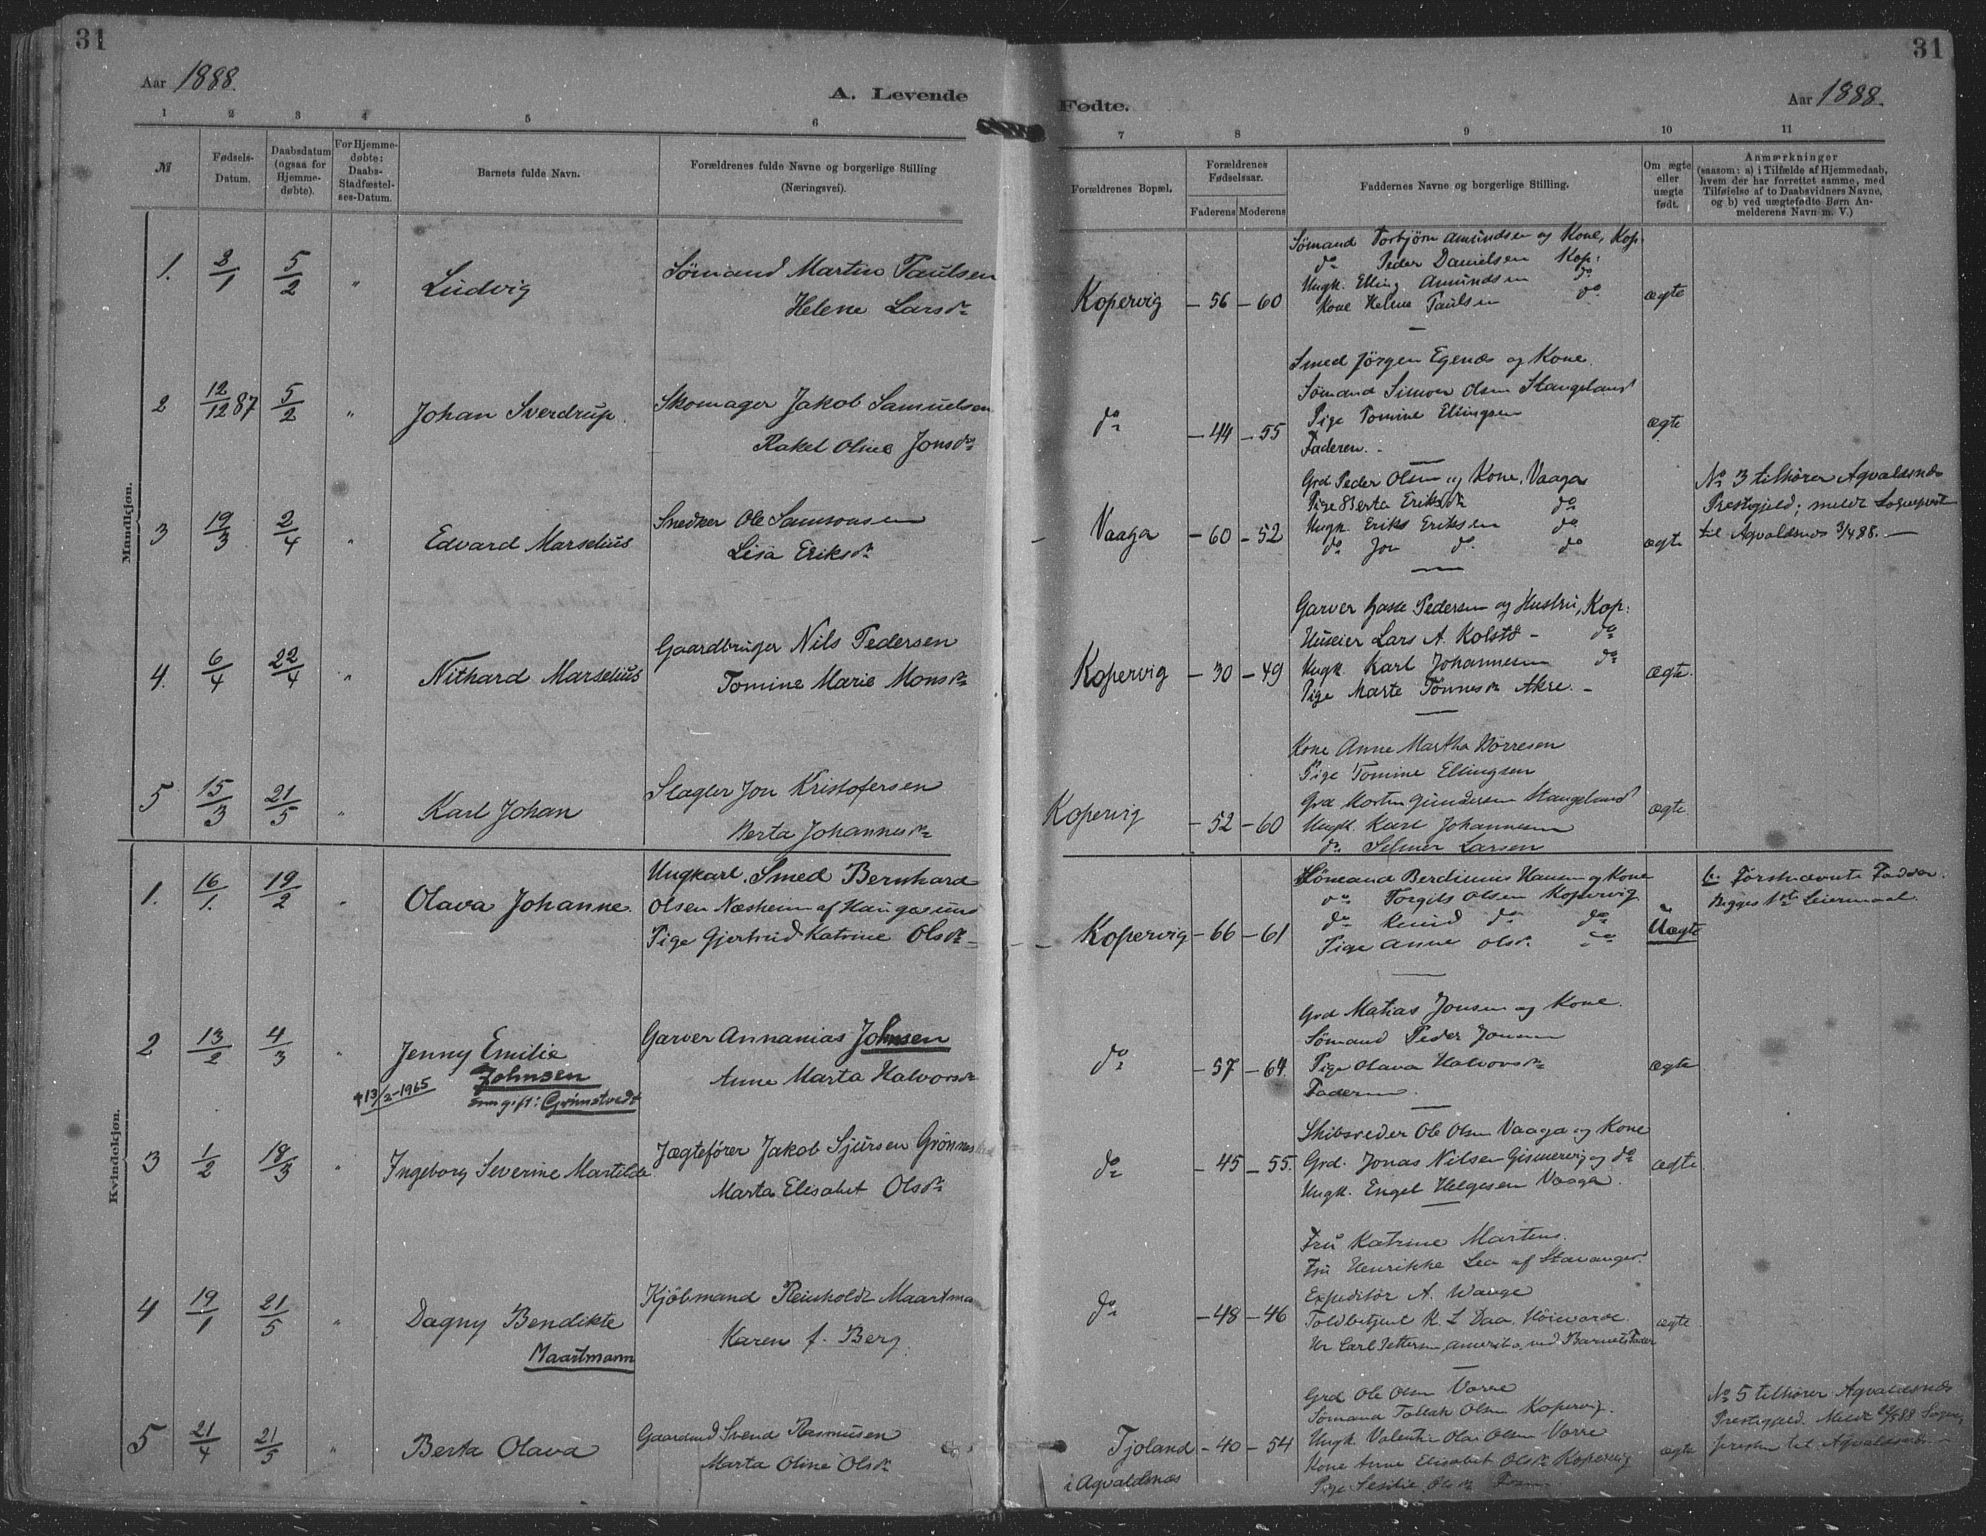 31
Aar 1888.
A. Levende
1 2 3 4 5 6
№
Fødsels-
Datum.
Daabsdatum
(ogsaa for
Hjemme-
døbte).
For Hjemme-
døbte:
Daabs-
Stadfæstel-
ses-Datum.
Barnets fulde Navn.
Forældrenes fulde Navne og borgerlige Stilling
(Næringsvei).
Mandkjøn.
1. 3/1 5/2 " Ludvig
Sømand Martin Paulsen
Helene Larsdr
2 12/12 87 5/2 " Johan Sverdrup
Skomager Jakob Samuelsen
Rakel Oline Jonsdr
3 19/3 2/4 " Edvard Marselius
Snedker Ole Samsonsen
Lisa Eriksdr
4. 6/4 22/4 " Nithard Marselius
Gaardbruger Nils Pedersen
Tomine Marie Monsdr
5 15/3 21/5 " Karl Johan
Slagter Jon Kristofersen
Berta Johannesdr
Kvindekjøn.
1. 16/1. 19/2 " Olava Johanne.
Ungkarl. Smed Bernhard
Olsen Næsheim af Haugesund
Pige Gjertrud Katrine Olsdr
2 13/2 4/3 " Jenny Emilie
Johnsen
† 13/2-1965 som gift: Grimstvedt
Garver Annanias Johnsen
Anne Marta Halvorsdr
3 1/2 18/3 " Ingeborg Severine Martilde
Jægtefører Jakob Sjursen Grønnes
Marta Elisabet Olsdr
4 19/1 21/5 " Dagny Bendikte
Maartmann
Kjöbmand Reinholdt Maartma
Karen f. Berg.
5 21/4 21/5 " Berta Olava
Gaardmd Svend Rasmusen
Marta Oline Olsdr
31
Fødte.
Aar 1888.
7 8 9 10 11
Forældrenes Bopæl.
Forældrenes
Fødselsaar.
Faderens Moderens
Faddernes Navne og borgerlige Stilling.
Om ægte
eller
uægte
født.
Anmærkninger
(saasom: a) i Tilfælde af Hjemmedaab,
hvem der har forrettet samme, med
Tilføielse af to Daabsvidners Navne,
og b) ved uægtefødte Børn An-
melderens Navn m. V.)
Kopervig - 56 - 60
Sømand Torbjørn Amundsen og Kone, Kop.
do Peder Danielsen Kop:
Ungk. Elling Amundsen do
Kone Helene Paulsen do
ægte
do - 44 - 55
Smed Jørgen Egenæs og Kone.
Sømand Simon Olsen Stangeland
Pige Tomine Ellingsen
Faderen. -
ægte
Vaaga - 60 - 52
Grd Peder Olsen og Kone, Vaaga
Pige Berta Eriksdr do
Ungk. Eriks Eriksen do
do Jon do. do
ægte
No 3 tilhører Agvaldsnæs
Prestegjeld; meldt Sogneprest
til Agvaldsnes 3/4 88. -
Kopervig - 30 - 49
Garver Gasse Pedersen og Hustru, Kop:
Huseier Lars A. Kolstø - do
Ungk. Karl Johannesen do
Pige Marte Tønnesdr Akre. -
ægte.
Kopervig - 52 - 60
Kone Anne Martha Børresen
Pige Tomine Ellingsen
Grd Morten Gundersen Stangeland
Ungk. Karl Johannesen
do Selmer Larsen
ægte
Kopervig - 66 - 61
Sømand Berdinius Hansen og Kone
do Torgils Olsen Kopervig
do do do
Pige Anne Olsdr do
Uægte
b. Førstnævnte Fadder.
Begges 1ste Leiermaal.
do - 57 - 64.
Grd Matias Jonsen og Kone.
Sømand Peder Jonsen
Pige Olava Halvorsdr
Faderen.
ægte
do - 45 - 55.
Skibsreder Ole Olsen Vaaga og Kone
Grd. Jonas Nilsen Gismervig og do
Ungk. Engel Helgesen Vaaga.
ægte
do - 48 - 46
Fru Katrine Martens.
Fru Henrikke Lea af Stavanger.
Expeditør A. Waage
Toldbetjent K. L. Daa, Høievarde.
Hr Carl Pettersen, Amerika, ved Barnets Fader
ægte
Tjoland
i Agvaldsnæs - 40 - 54
Grd Ole Olsen Vorre
Sømand Tollak Olsen Kopervig.
Ungk. Valentin Olai Olsen Vorre
Kone Anne Elisabet Olsdr Kopervig
Pige Olsdr
ægte
No 5 tilhører Agvaldsnæs
Prestegjeld. Meldt Sogne-
presten til Agvaldsnæs